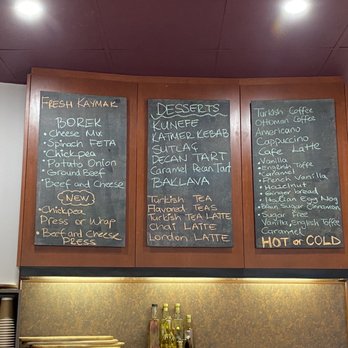 FRESH KAYMAK
BOREK
• Cheese Mix
• Spinach FETA
• Chickpea
• Potato Onion
• Ground Beef
• Beef and Cheese
NEW
• Chickpea
Press or Wrap
• Beef and Cheese
PRESS
DESSERTS
KUNEFE
KATMER KEBAB
SUTLAÇ
PECAN TART
Caramel Pecan Tart
BAKLAVA
Turkish Tea
Flavored Teas
Turkish Tea LATTE
Chai LATTE
London LATTE
Turkish Coffee
Ottoman Coffee
Americano
Cappuccino
Cafe Latte
• Vanilla
• English Toffee
• Caramel
• French Vanilla
• Hazelnut
• Ginger bread
• Italian Egg Nog
• Brown Sugar Cinnamon
• Sugar Free
Vanilla, English Toffee
Caramel
HOT or COLD